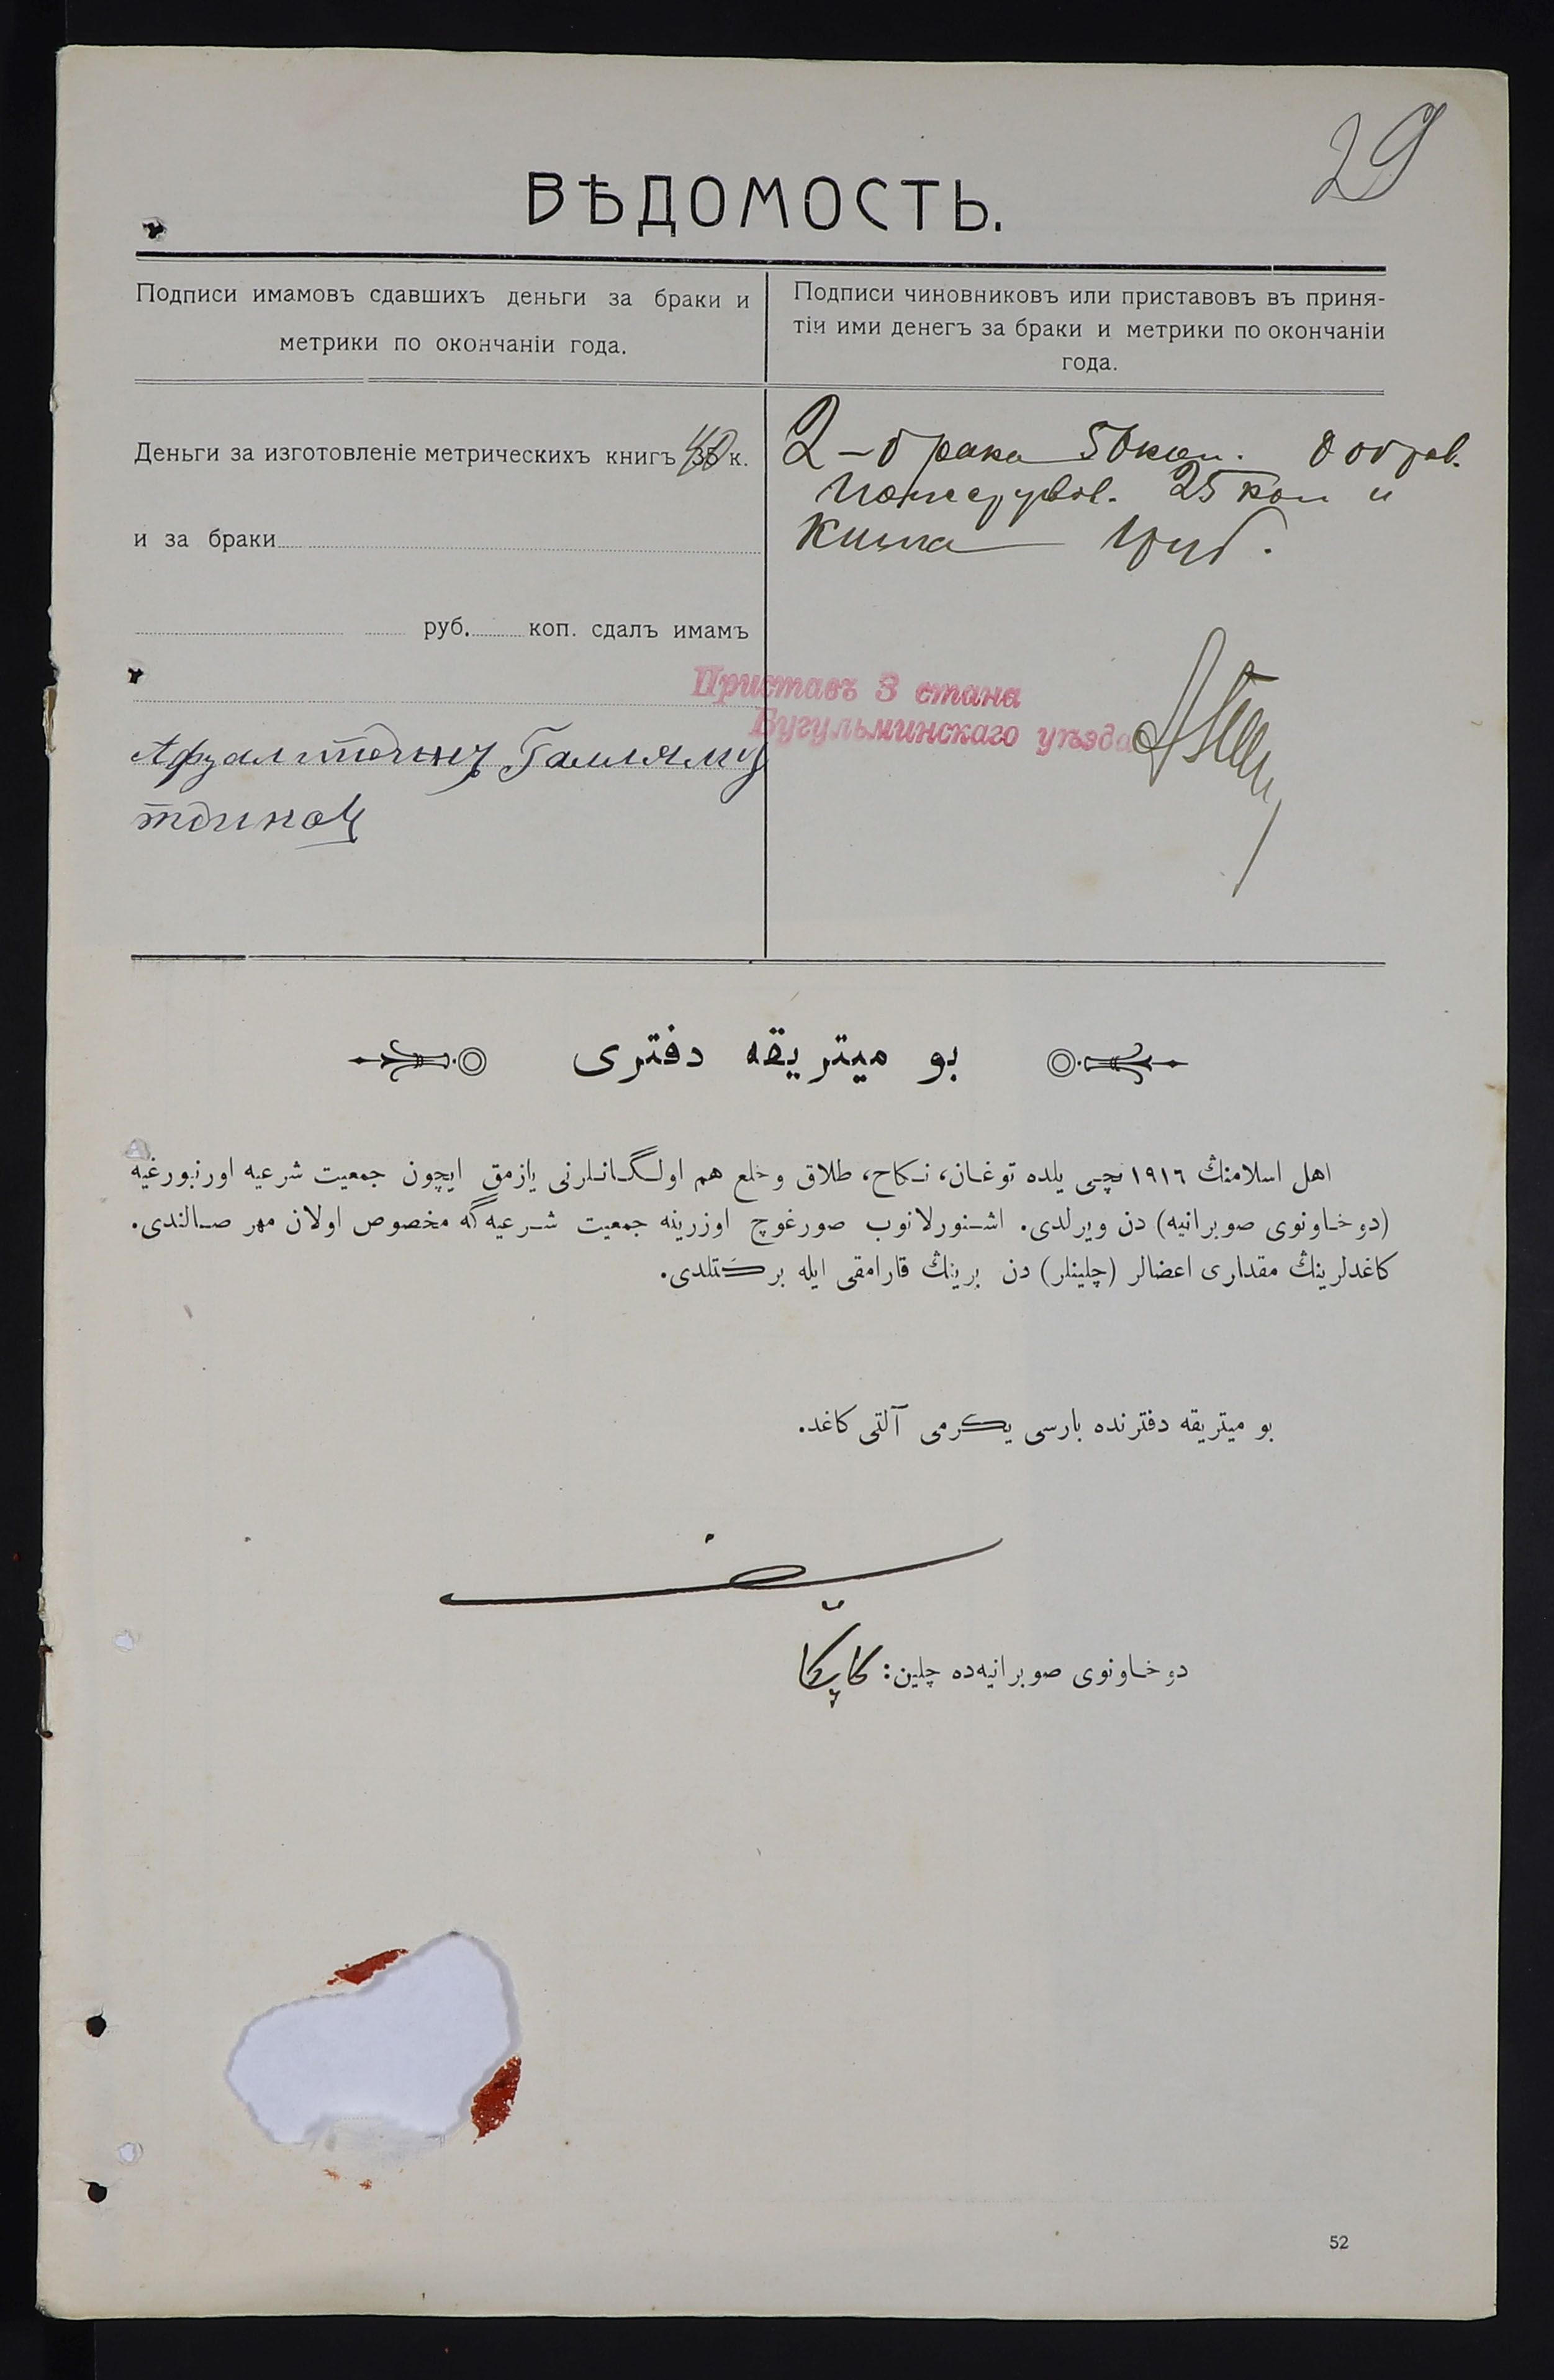 29
ВѢДОМОСТЬ.
Подписи имамовъ сдавшихъ деньги за браки и
метрики по окончаніи года.
Подписи чиновниковъ или приставовъ въ приня-
тіи ими денегъ за браки и метрики по окончаніи
года.
Деньги за изготовленіе метрическихъ книгъ 35 к.
и за браки
руб. коп. сдалъ имамъ
2 - брака 50 коп. добров.
пожертвов. 25 коп и
книга 1 руб.
Приставъ 3 стана
Бугульминскаго уѣзда
بو ميتريقه دفترى
اهل اسلامنڭ ١٩١٦ نچى يلده توغان، نكاح، طلاق وخلع هم اولگانلرنى يازمق ايچون جمعيت شرعيه اورنبورغيه
(دوخاونوى صوبرانيه) دن ويرلدى. اشنورلانوب صورغوچ اوزرينه جمعيت شرعيه گه مخصوص اولان مهر صالندى.
كاغدلرينڭ مقدارى اعضالر (چلينلر) دن برينڭ قارامقى ايله بركتلدى.
بو ميتريقه دفترنده بارسى يكرمى آلتى كاغد.
دوخاونوى صوبرانيه ده چلين:
52